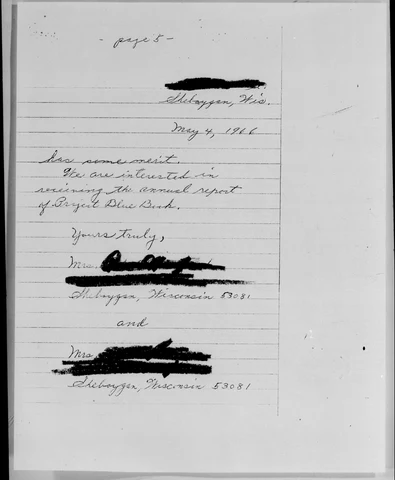 - page 5 -
Sheboygan, Wis.
May 4, 1966
has some merit.
We are interested in
receiving the annual report
of Project Blue Book.
Yours truly,
Mrs.
Sheboygan, Wisconsin 53081
and
Mrs.
Sheboygan, Wisconsin 53081